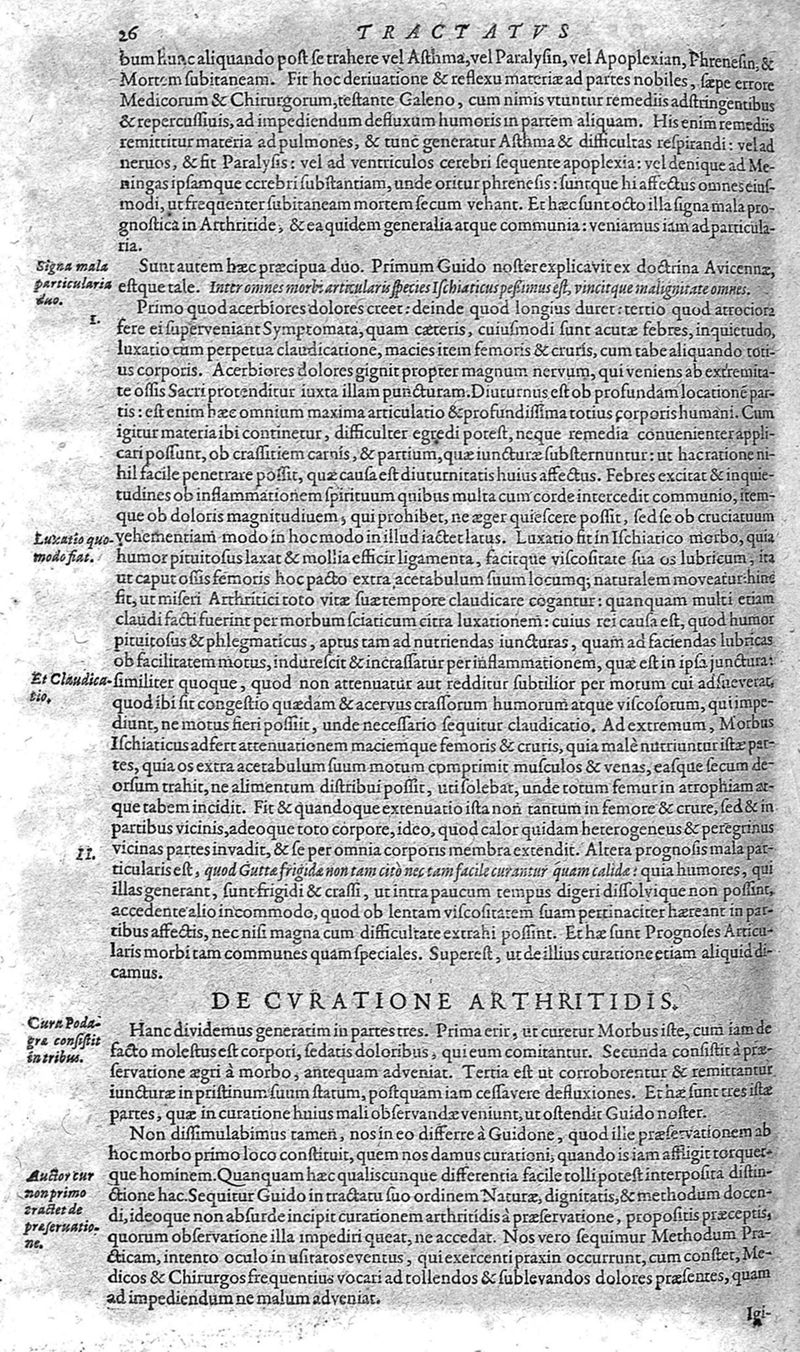 26 TRACTATVS
bum hunc aliquando post se trahere vel Asthma, vel Paralysin, vel Apoplexian, Phrenesin, &
Mortem subitaneam. Fit hoc deriuatione & reflexu materiæ ad partes nobiles, sæpe errore
Medicorum & Chirurgorum, testante Galeno, cum nimis vtuntur remediis adstringentibus
& repercussiuis, ad impediendum defluxum humoris in partem aliquam. His enim remediis
remittitur materia ad pulmones, & tunc generatur Asthma & difficultas respirandi: vel ad
neruos, & fit Paralysis: vel ad ventriculos cerebri sequente apoplexia: vel denique ad Me-
ningas ipsamque cerebri substantiam, unde oritur phrenesis: suntque hi affectus omnes eius-
modi, ut frequenter subitaneam mortem secum vehant. Et hæc sunt octo illa signa mala pro-
gnostica in Arthritide, & ea quidem generalia atque communia: veniamus iam ad particula-
ria.
Signa mala
particularia
duo.
Sunt autem hæc præcipua duo. Primum Guido noster explicavit ex doctrina Avicennæ,
estque tale. Inter omnes morbi articularis species Ischiaticus pessimus est, vincitque malignitate omnes.
I.
Primo quod acerbiores dolores creet: deinde quod longius duret: tertio quod atrociora
fere ei superveniant Symptomata, quam cæteris, cuiusmodi sunt acutæ febres, inquietudo,
luxatio cum perpetua claudicatione, macies item femoris & cruris, cum tabe aliquando toti-
us corporis. Acerbiores dolores gignit propter magnum nervum, qui veniens ab extremita-
te ossis Sacri protenditur iuxta illam puncturam. Diuturnus est ob profundam locationē par-
tis: est enim hæc omnium maxima articulatio & profundissima totius corporis humani. Cum
igitur materia ibi continetur, difficulter egredi potest, neque remedia conuenienter appli-
cari possunt, ob crassitiem carnis, & partium, quæ iuncturæ substernuntur: ut hac ratione ni-
hil facile penetrare possit, quæ causa est diuturnitatis huius affectus. Febres excitat & inquie-
tudines ob inflammationem spirituum quibus multa cum corde intercedit communio, item-
que ob doloris magnitudiuem, qui prohibet, ne æger quiescere possit, sed se ob cruciatuum
Luxatio quo-
modo fiat.
vehementiam modo in hoc modo in illud iactet latus. Luxatio fit in Ischiatico morbo, quia
humor pituitosus laxat & mollia efficit ligamenta, facitque viscositate sua os lubricum, ita
ut caput ossis femoris hoc pacto extra acetabulum suum locumq; naturalem moveatur: hinc
fit, ut miseri Arthritici toto vitæ suæ tempore claudicare cogantur: quanquam multi etiam
claudi facti fuerint per morbum sciaticum citra luxationem: cuius rei causa est, quod humor
pituitosus & phlegmaticus, aptus tam ad nutriendas iuncturas, quam ad faciendas lubricas
ob facilitatem motus, indurescit & incrassatur per inflammationem, quæ est in ipsa junctura:
Et Claudica-
tio.
similiter quoque, quod non attenuatur aut redditur subtilior per motum cui adsueverat,
quod ibi sit congestio quædam & acervus crassorum humorum atque viscosorum, qui impe-
diunt, ne motus fieri possiit, unde necessario sequitur claudicatio. Ad extremum, Morbus
Ischiaticus adfert attenuationem maciemque femoris & cruris, quia malè nutriuntur istæ par-
tes, quia os extra acetabulum suum motum comprimit musculos & venas, easque secum de-
orsum trahit, ne alimentum distribui possit, uti solebat, unde totum femur in atrophiam at-
que tabem incidit. Fit & quandoque extenuatio ista non tantum in femore & crure, sed & in
partibus vicinis, adeoque toto corpore, ideo, quod calor quidam heterogeneus & peregrinus
II.
vicinas partes invadit, & se per omnia corporis membra extendit. Altera prognosis mala par-
ticularis est, quod Guttæ frigidæ non tam citò nec tam facile curantur quam calidæ: quia humores, qui
illas generant, sunt frigidi & crassi, ut intra paucum tempus digeri dissolvique non possint,
accedente alio incommodo, quod ob lentam viscositatem suam pertinaciter hæreant in par-
tibus affectis, nec nisi magna cum difficultate extrahi possint. Et hæ sunt Prognoses Articu-
laris morbi tam communes quam speciales. Superest, ut de illius curatione etiam aliquid di-
camus.
DE CVRATIONE ARTHRITIDIS.
Cura Poda-
græ consistit
in tribus.
Hanc dividemus generatim in partes tres. Prima erit, ut curetur Morbus iste, cum iam de
facto molestus est corpori, sedatis doloribus, qui eum comitantur. Secunda consistit à præ-
servatione ægri à morbo, antequam adveniat. Tertia est ut corroborentur & remittantur
iuncturæ in pristinum suum statum, postquam iam cessavere defluxiones. Et hæ sunt tres istæ
partes, quæ in curatione huius mali observandæ veniunt, ut ostendit Guido noster.
Non dissimulabimus tamen, nos in eo differre à Guidone, quod ille præservationem ab
hoc morbo primo loco constituit, quem nos damus curationi, quando is iam affligit torquet-
Auctor cur
non primo
tractet de
præseruatio-
ne.
que hominem. Quanquam hæc qualiscunque differentia facile tolli potest interposita distin-
ctione hac. Sequitur Guido in tractatu suo ordinem Naturæ, dignitatis, & methodum docen-
di, ideoque non absurde incipit curationem arthritidis à præservatione, propositis præceptis,
quorum observatione illa impediri queat, ne accedat. Nos vero sequimur Methodum Pra-
cticam, intento oculo in usitatos eventus, qui exercenti praxin occurrunt, cum constet, Me-
dicos & Chirurgos frequentius vocari ad tollendos & sublevandos dolores præsentes, quam
ad impediendum ne malum adveniat.
Igi-